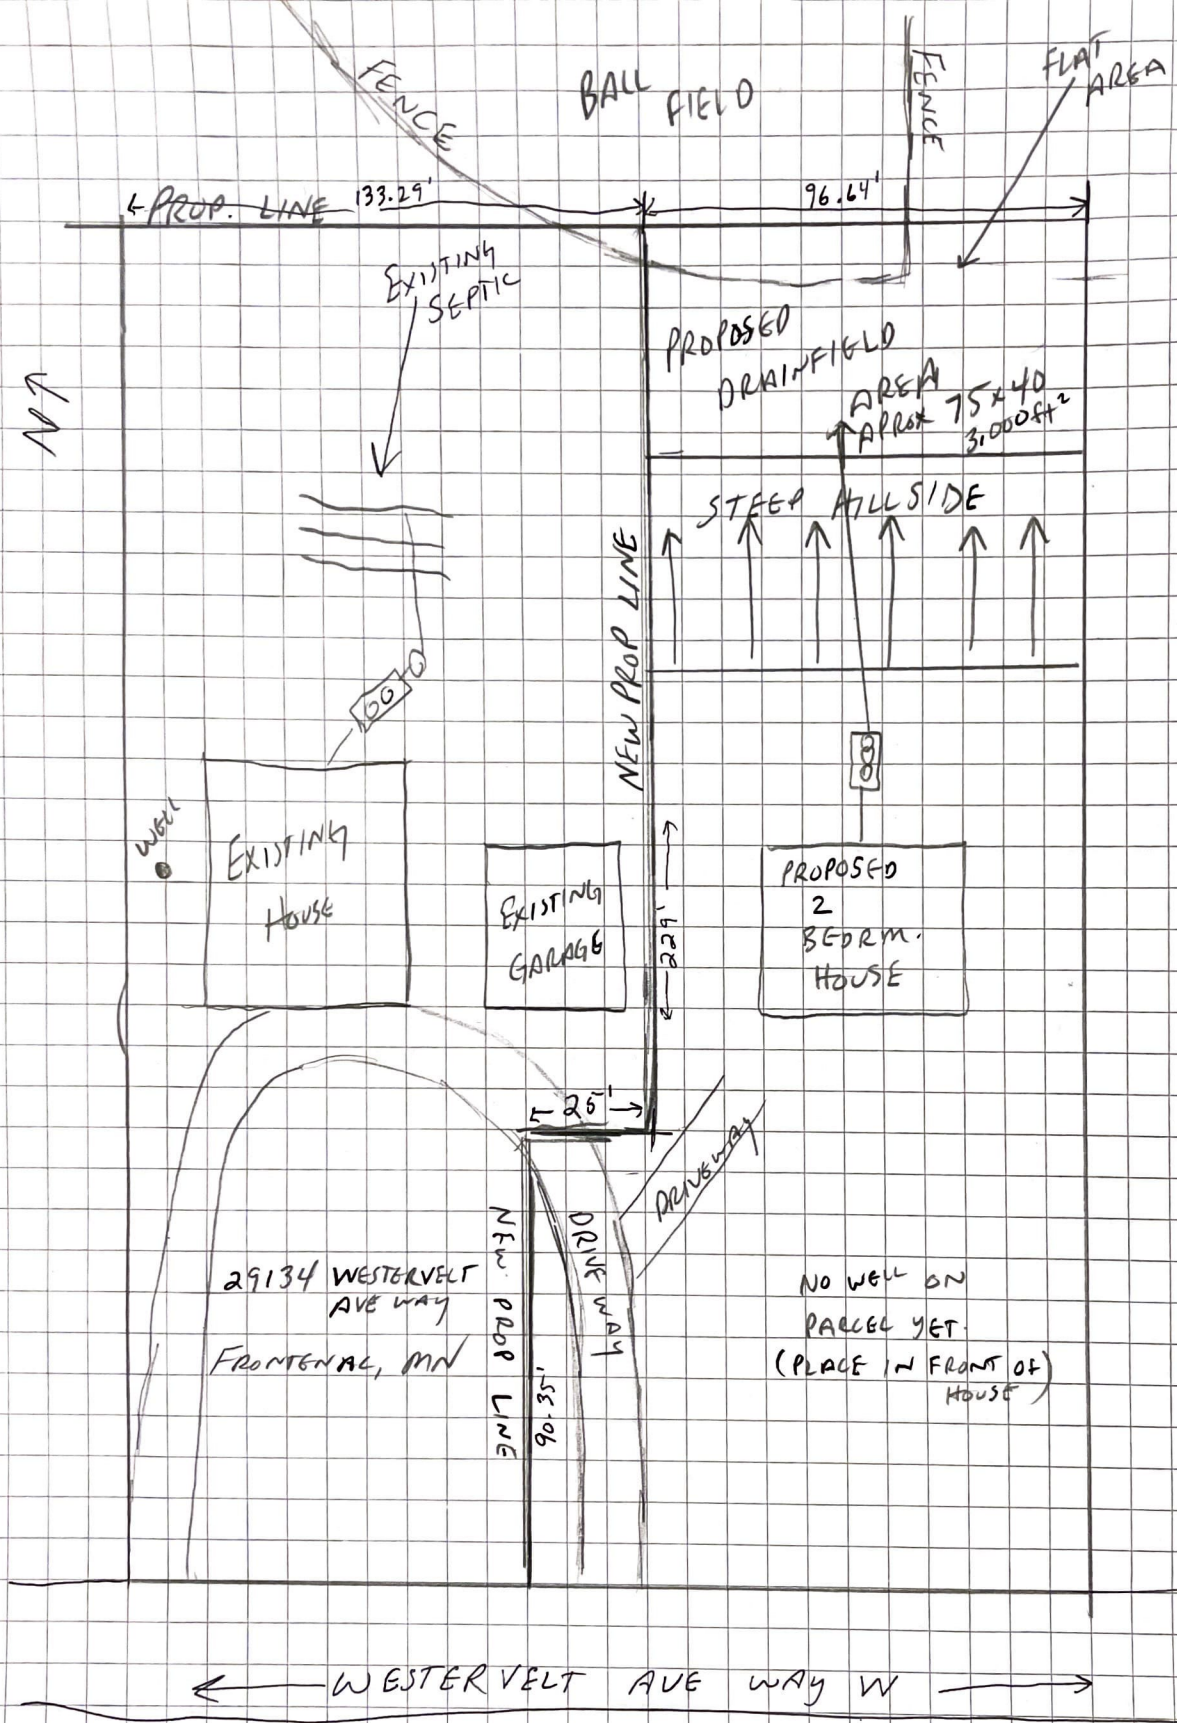 FENCE
BALL FIELD
FENCE
FLAT
AREA
PROP. LINE 133.29'
96.64'
EXISTING
SEPTIC
PROPOSED
DRAINFIELD
AREA
APROX 75x40
3,000ft²
N
STEEP HILLSIDE
NEW PROP LINE
WELL
EXISTING
HOUSE
EXISTING
GARAGE
229'
PROPOSED
2
BEDRM.
HOUSE
25'
DRIVEWAY
NEW PROP LINE
90.35'
DRIVEWAY
29134 WESTERVELT
AVE WAY
FRONTENAC, MN
NO WELL ON
PARCEL YET.
(PLACE IN FRONT OF
HOUSE)
WESTERVELT AVE WAY W